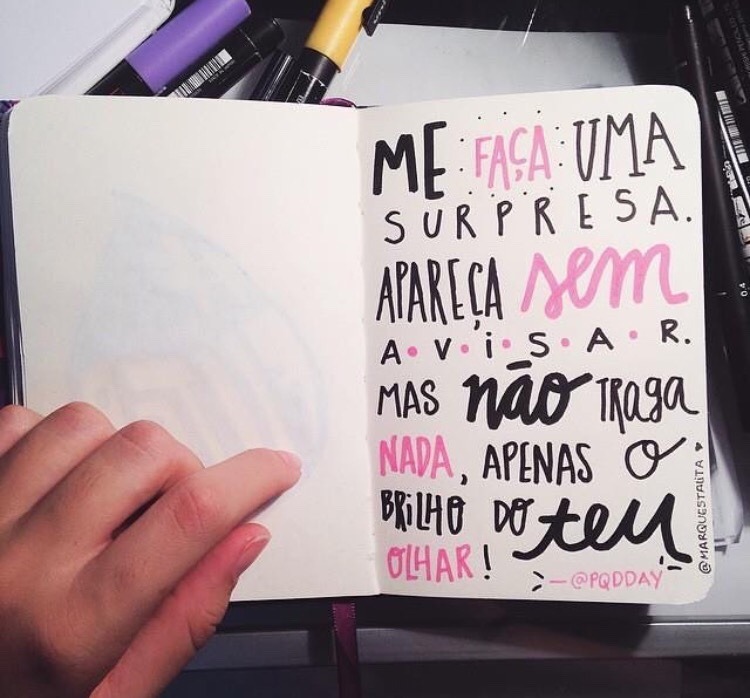 ME FAÇA UMA
SURPRESA.
APAREÇA sem
A•V•i•S•A•R.
MAS não TRaga
NADA, APENAS O
BRiLHO DO teu
OLHAR!
—@PQDDAY
@MARQUESTALITA